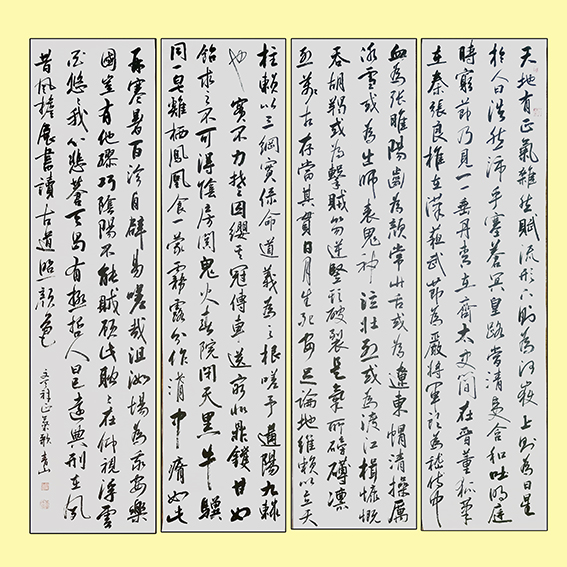 天地有正氣雜然賦流形下則為河嶽上則為日星
於人曰浩然沛乎塞蒼冥皇路當清夷含和吐明庭
時窮節乃見一一垂丹青在齊太史簡在晉董狐筆
在秦張良椎在漢蘇武節為嚴將軍頭為嵇侍中
血為張睢陽齒為顏常山舌或為遼東帽清操厲
冰雪或為出師表鬼神泣壯烈或為渡江楫慷慨
吞胡羯或為擊賊笏逆豎頭破裂是氣所磅礴凜
烈萬古存當其貫日月生死安足論地維賴以立天
柱賴以三綱實係命道義為之根嗟予遘陽九隸
也實不力楚囚纓其冠傳車送窮北鼎鑊甘如
飴求之不可得陰房闃鬼火春院閟天黑牛驥
同一皂雞栖鳳凰食蒙霧露分作溝中瘠如此
再寒暑百沴自辟易嗟哉沮洳場為我安樂
國豈有他繆巧陰陽不能賊顧此耿耿在仰視浮雲
白悠悠我心悲蒼天曷有極哲人日已遠典刑在夙
昔風檐展書讀古道照顏色
文天祥正氣歌